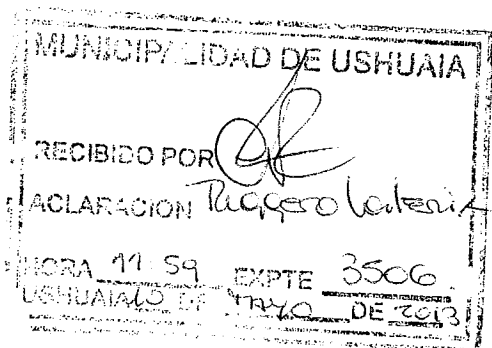 MUNICIPALIDAD DE USHUAIA
RECIBIDO POR
ACLARACION Ruggero Valeria
HORA 11:59 EXPTE 3506
USHUAIA 15 DE MAYO DE 2013